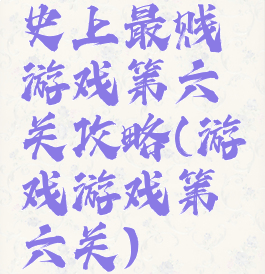 史上最贱
游戏第六
关攻略(游
戏游戏第
六关)